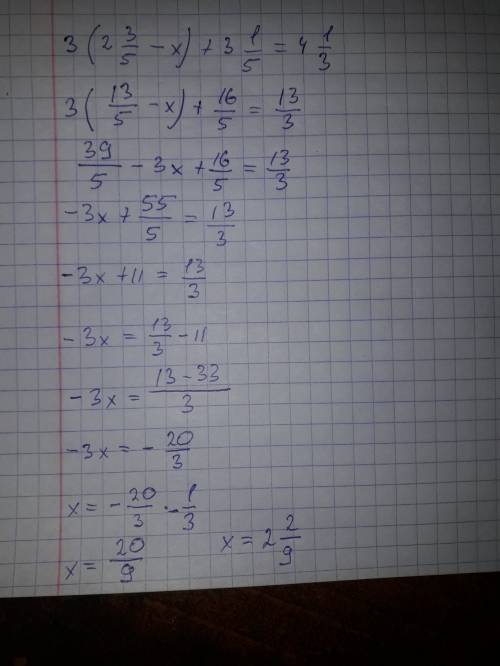 3(2 3/5 - x) + 3 1/5 = 4 1/3
3(13/5 - x) + 16/5 = 13/3
39/5 - 3x + 16/5 = 13/3
-3x + 55/5 = 13/3
-3x + 11 = 13/3
-3x = 13/3 - 11
-3x = (13 - 33)/3
-3x = - 20/3
x = - 20/3 · - 1/3
x = 20/9 x = 2 2/9